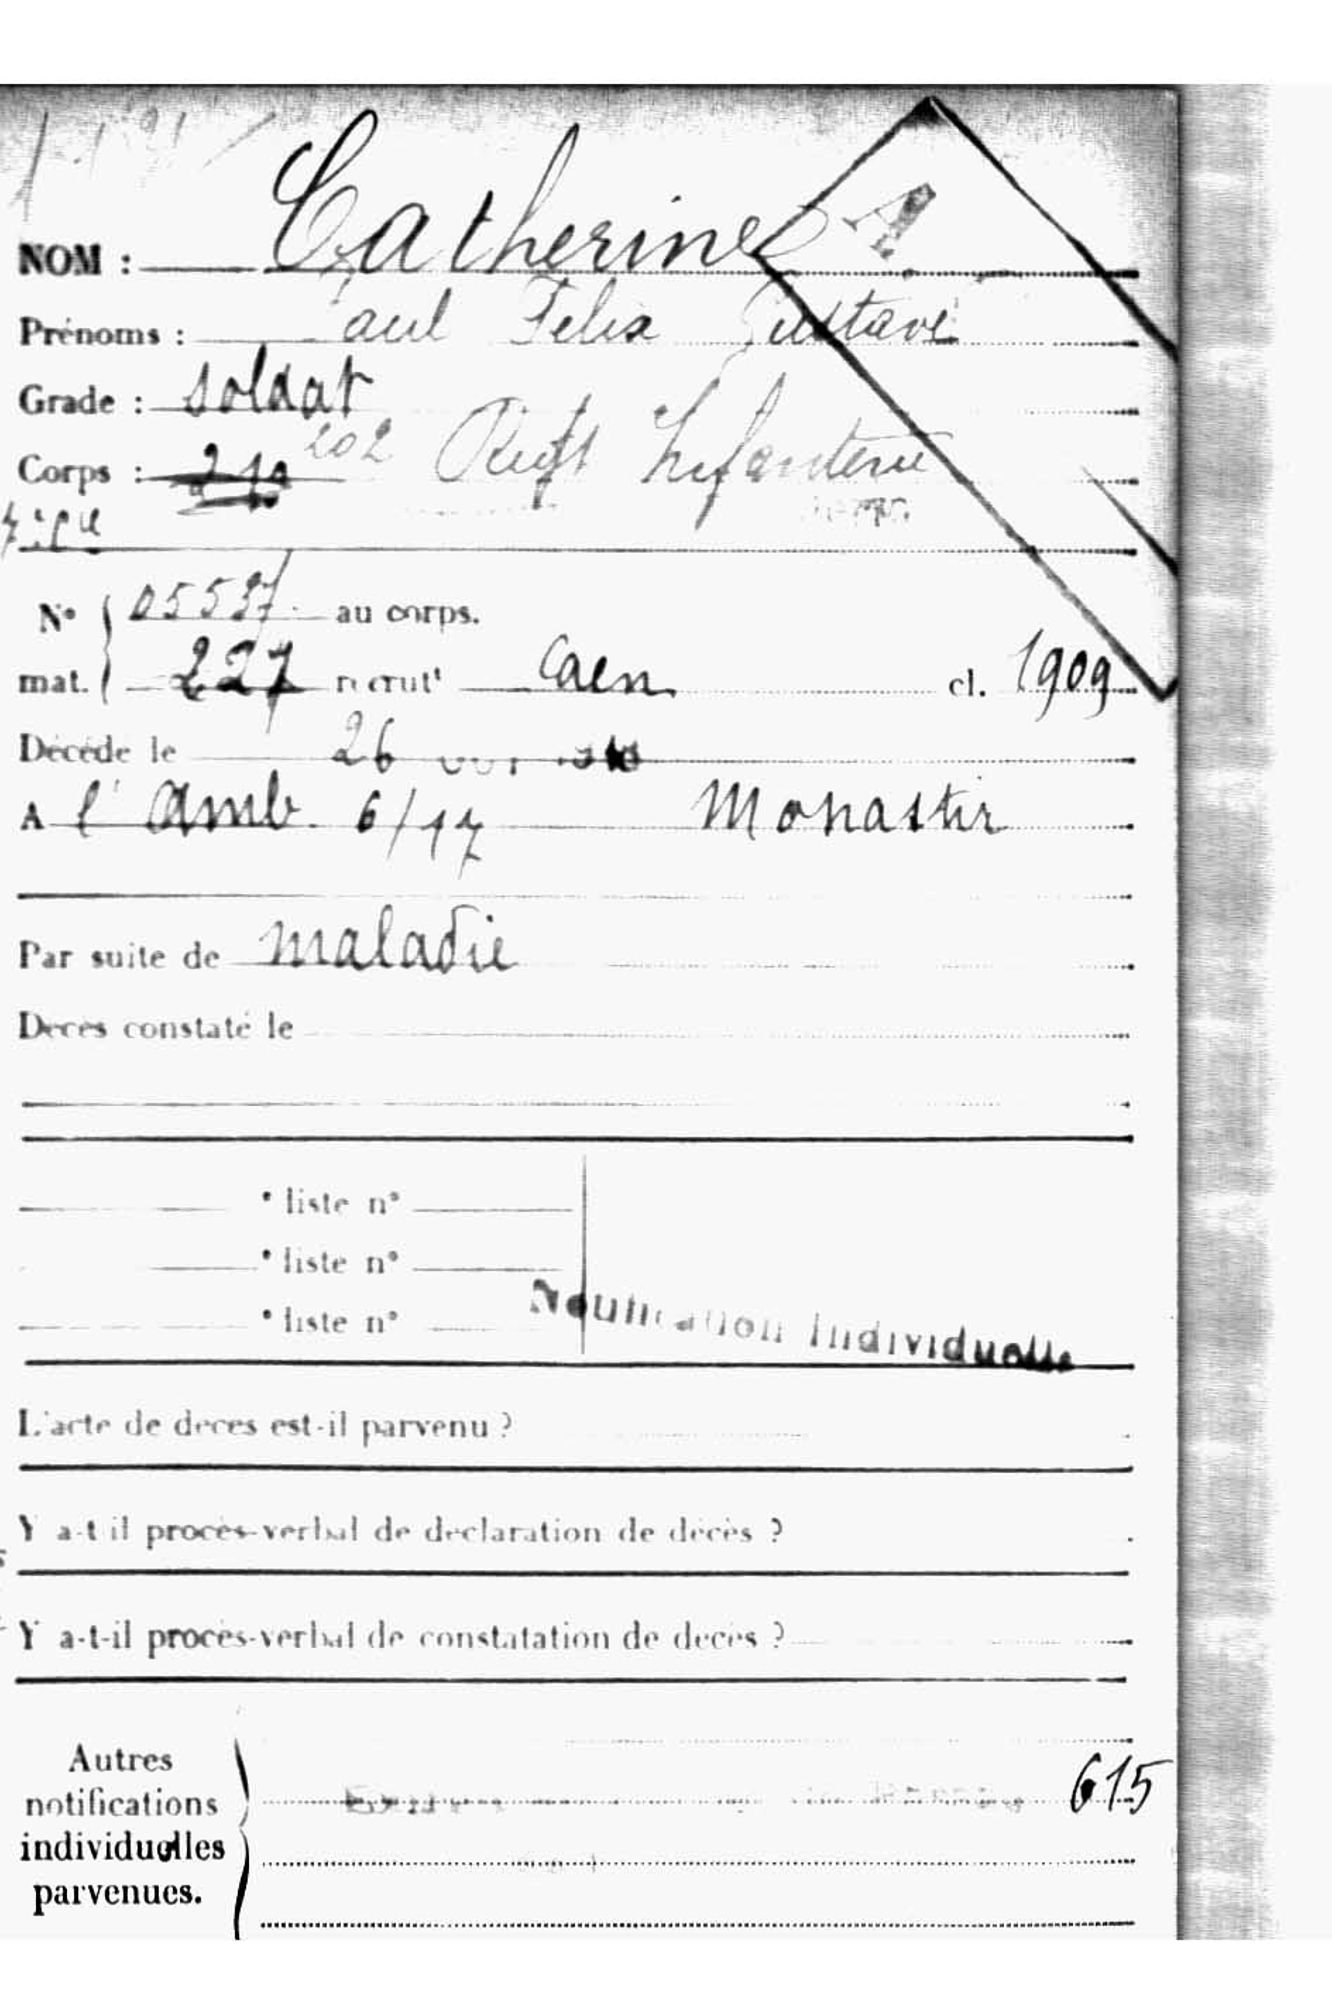 NOM : Catherine A
Prénoms : Paul Felix Gustave
Grade : soldat
Corps : 210 202 Regt Infanterie
N° 05537 au corps.
mat. 227 recrut' Caen cl. 1909
Décédé le 26
A l'Amb. 6/17 Monastir
Par suite de maladie
Décès constaté le
• liste n°
• liste n°
• liste n°
Notification Individuelle
L'acte de décès est-il parvenu ?
Y a-t-il procès-verbal de déclaration de décès ?
Y a-t-il procès-verbal de constatation de décès ?
Autres
notifications 615
individuelles
parvenues.